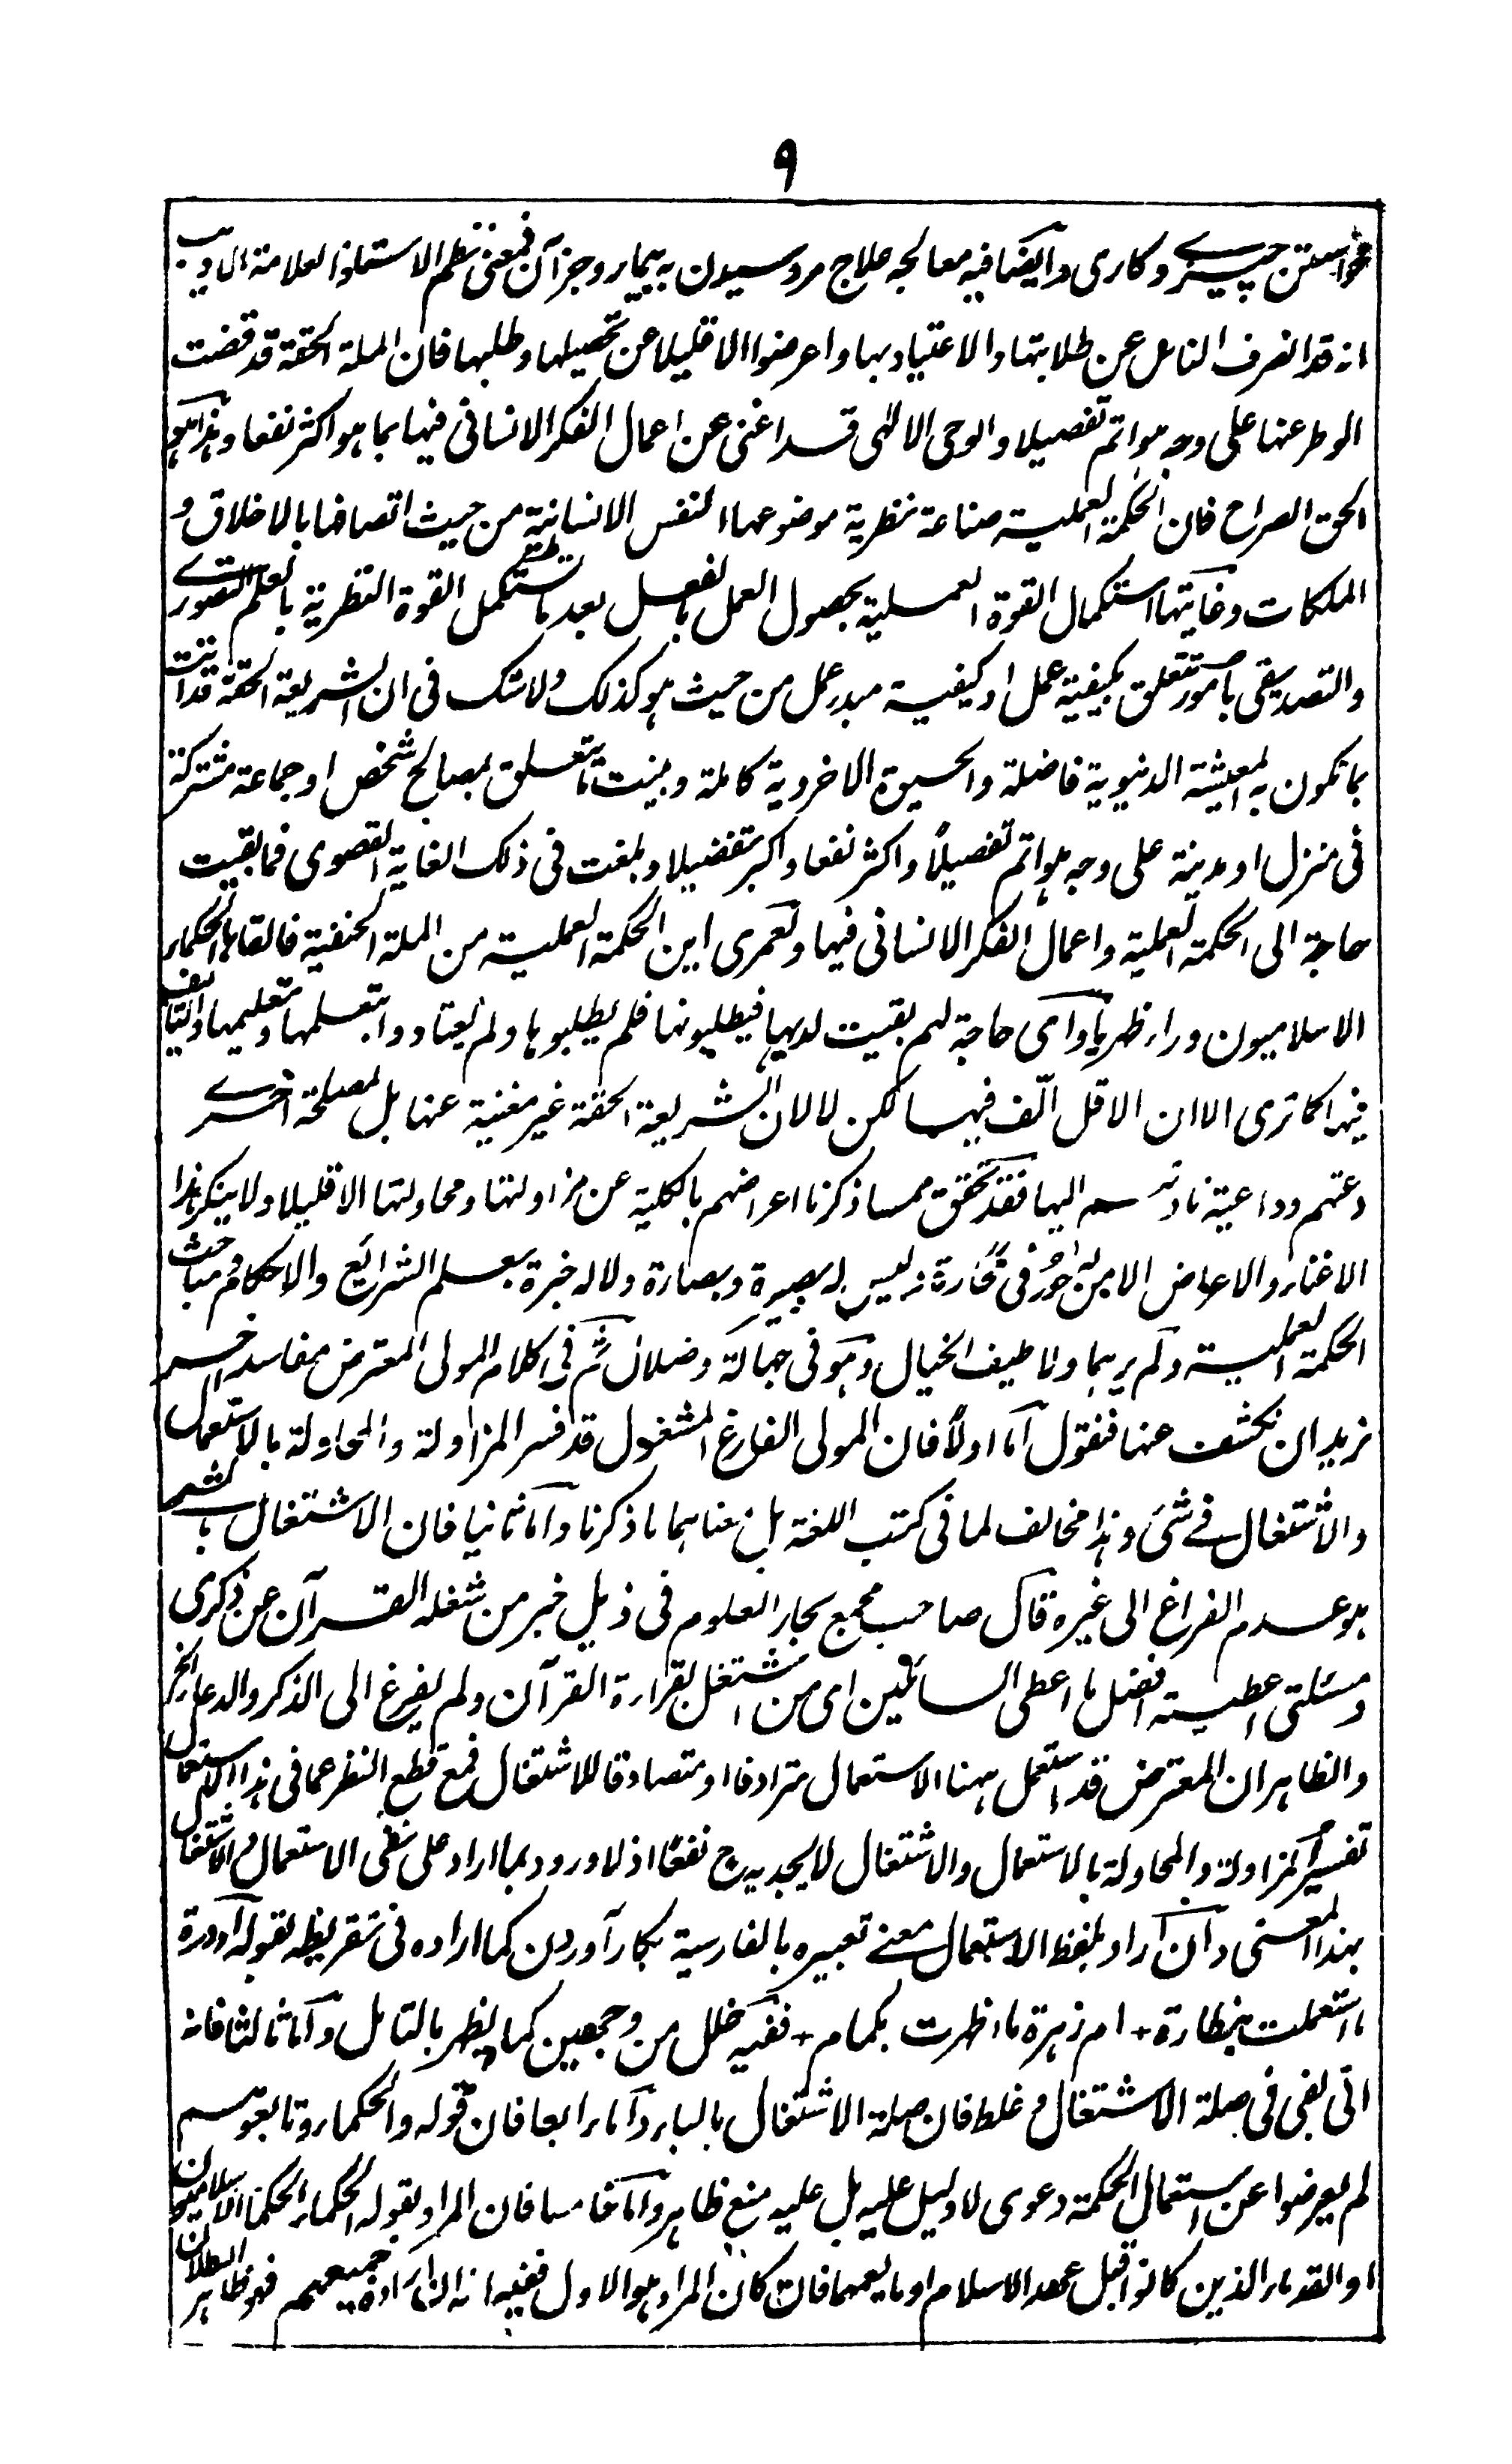 ۹
خواستن چیزے و کاری و ایضا فیه معالجه علاج مرو سیدن به بیمار و جز آن فمعنی نظم الاستاذ العلامة الادیب
انه قد انصرف الناس عن طلابتها والاعتیاد بها واعرضوا الا قلیلا عن تحصیلها وطلبها فان الملة الحقة قد قضت
الوطر عنها علی وجه هو اتم تفصیلا والوحی الالهی قد اغنی عن اعمال الفکر الانسانی فیها بما هو اکثر نفعا وهذا هو
الحق الصراح فان الحکمة العملیة صناعة نظریة موضوعها النفس الانسانیة من حیث اتصافها بالاخلاق و
الملکات وغایتها استکمال القوة العملیة بحصول العمل بالفعل بعد ما تستکمل القوة النظریة بالعلم التصوری
والتصدیقی بامور تتعلق بکیفیة عمل او کیفیة مبدء عمل من حیث هو کذلک ولا شک فی ان الشریعة الحقة قد اتت
بما تکون به المعیشة الدنیویة فاضلة والحیوة الاخرویة کاملة وبینت ما یتعلق بمصالح شخص او جماعة مشترکة
فی منزل او مدینة علی وجه هو اتم تفصیلاً واکثر نفعا واکبر تفضیلا وبلغت فی ذلک الغایة القصوی فما بقیت
حاجة الی الحکمة العملیة واعمال الفکر الانسانی فیها ولعمری این الحکمة العملیة من الملة الحنفیة فالقاها الحکماء
الاسلامیون وراء ظهریا وای حاجة لهم بقیت لدیها فیطلبونها فلم یطلبوها ولم یعتادوا بتعلمها وتعلیمها والتالیف
فیها کما تری الا ان الاقل الّف فیها لکن لا لان الشریعة الحقة غیر مغنیة عنها بل لمصلحة اخرے
دعتهم وداعیة نادتهم الیها فقد تحقق مما ذکرنا اعراضهم بالکلیة عن مزاولتها ومحاولتها الا قلیلا ولا ینکر هذا
الاغناء والاعراض الا من له حُورٌ فی مَحارة لیس له بصیرة وبصارة ولا له خبرة بعلم الشرائع والاحکام ومباحث
الحکمة العملیة ولم یرهما ولا طیف الخیال وهو فی جهالة وضلال ثم فی کلام المولی المعترض مفاسد اخر
نرید ان نکشف عنها فنقول اما اولاً فان المولی الفارغ المشغول قد فسر المزاولة والمحاولة بالاستعمال
والاشتغال فے شیٔ وهذا مخالف لما فی کتب اللغة بل معناهما ما ذکرنا واما ثانیا فان الاشتغال بالشیٔ
هو عدم الفراغ الی غیره قال صاحب مجمع بحار العلوم فی ذیل خبر من شغله القرآن عن ذکری
ومسئلتی اعطیته افضل ما اعطی السائلین ای من اشتغل بقراءة القرآن ولم یفرغ الی الذکر والدعاء الخ
والظاهر ان المعترض قد استعمل ههنا الاستعمال مترادفا او متصادقا للاشتغال فمع قطع النظر عما فی هذا الاستعمال
تفسیر المزاولة والمحاولة بالاستعمال والاشتغال لا یجدیه ح نفعًا اذ لا ورود بما اراد علی نفی الاستعمال والاشتغال
بهذا المعنی وان اراد بلفظ الاستعمال معنے تعبیره بالفارسیة بکار آوردن کما اراده فی تقریظه بقوله آ وردة
ما استعملت بنظارة + ام زهرة ما اظهرت بکمام + ففیه خلل من وجهین کما یظهر بالتامل واما ثالثا فانه
اتی بفی فی صلة الاشتغال وغلط فان صلة الاشتغال بالباء واما رابعا فان قوله والحکماء وتابعوهم
لم یعرضوا عن استعمال الحکمة دعوی لا دلیل علیه بل علیه منع ظاهر واما خامسا فان المراد بقوله الحکماء الحکماء الاسلامیون
او القدماء الذین کانوا قبل عهد الاسلام او ما یعمهما فان کان المراد هو الاول ففیه انه ان اراد جمیعهم فهو ظاهر البطلان